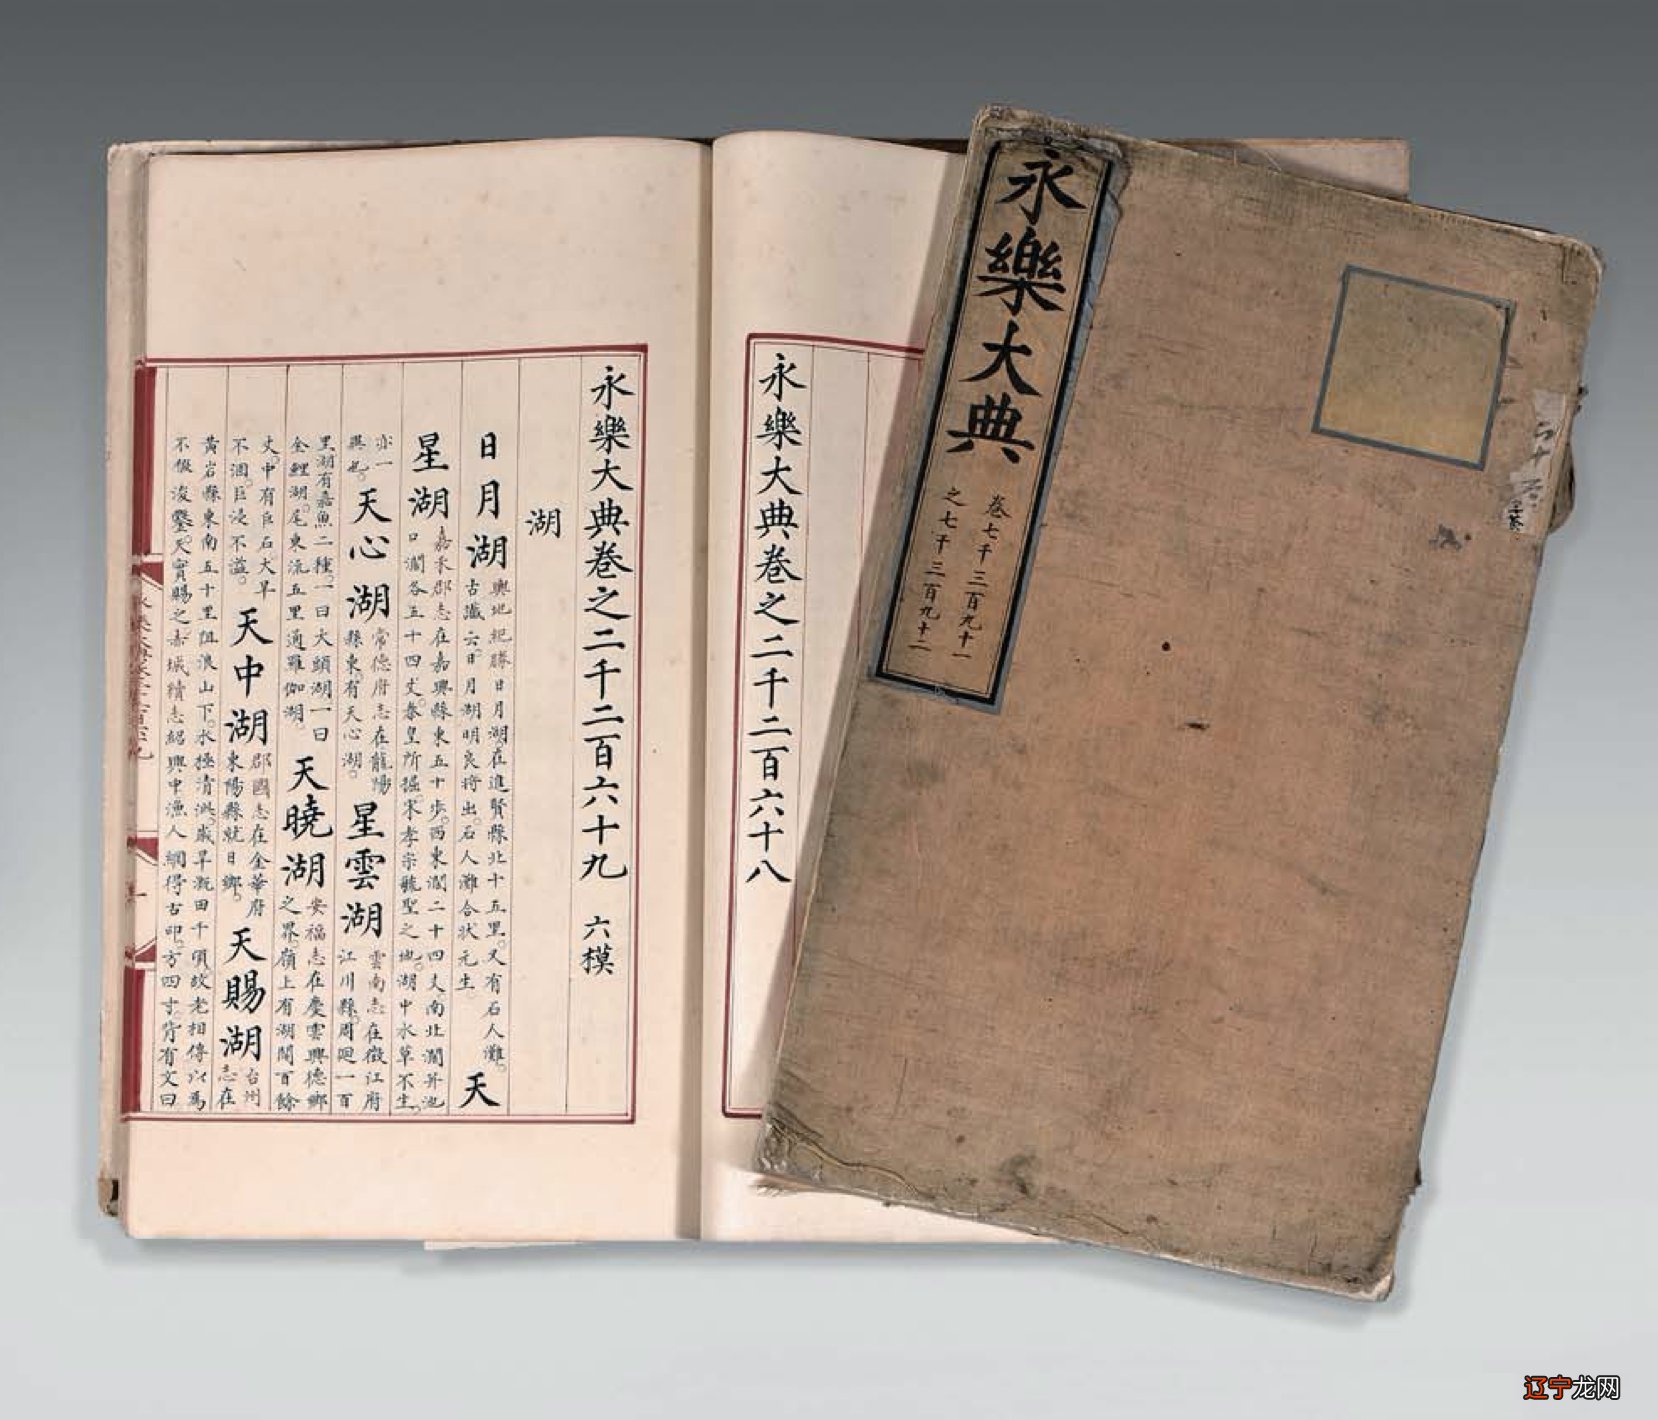 永樂大典
卷七千三百九十一
之七千三百九十二
永樂大典卷之二千二百六十八
永樂大典卷之二千二百六十九 六模
湖
日月湖
輿地紀勝日月湖在進賢縣北十五里。又有石人灘。
古讖云。日月湖明良將出。石人灘合狀元生。
天
星湖
嘉禾郡志在嘉興縣東五十步。西東濶二十四丈。南北濶并池
口濶各五十四丈。秦皇所掘。宋孝宗毓聖之地。湖中水草不生。
亦一
異也。
天心湖
常德府志在龍陽
縣東。有天心湖。
星雲湖
雲南志在徵江府
江川縣。周廻一百
里湖有嘉魚二種。一曰大頭湖一曰
金鯉湖。尾東流五里通羅伽湖。
天曉湖
安福志在慶雲興德鄉
之界。嶺上有湖闊百餘
丈。中有巨石大旱
不涸。巨浸不溢。
天中湖
郡國志在金華府
東陽縣就日鄉。
天賜湖
台州
志在
黃岩縣東南五十里阻浪山下。水極清洌。歲旱溉田千頃。故老相傳以爲
不假浚鑿。天實賜之。赤城續志紹興中漁人網得古印。方四寸。背有文曰
辽宁龙网